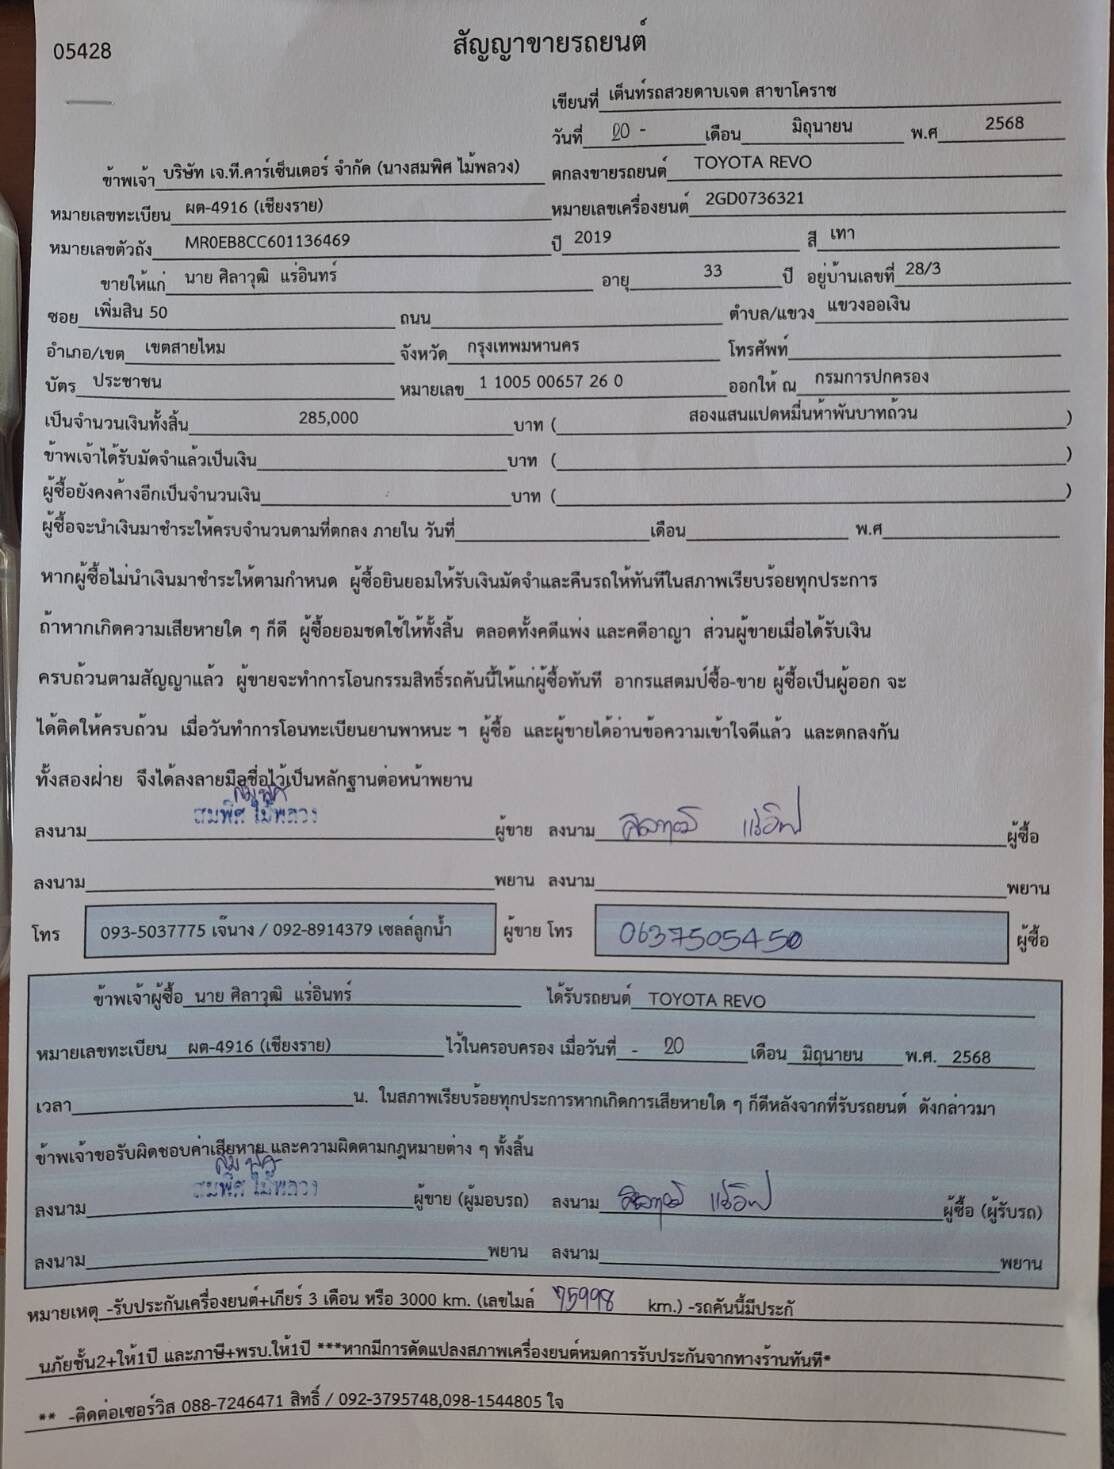 05428
สัญญาขายรถยนต์
เขียนที่ เต็นท์รถสวยดาบเจต สาขาโคราช
วันที่ 20 - เดือน มิถุนายน พ.ศ 2568
ข้าพเจ้า บริษัท เจ.ที.คาร์เซ็นเตอร์ จำกัด (นางสมพิศ ไม้พลวง) ตกลงขายรถยนต์ TOYOTA REVO
หมายเลขทะเบียน ผต-4916 (เชียงราย) หมายเลขเครื่องยนต์ 2GD0736321
หมายเลขตัวถัง MR0EB8CC601136469 ปี 2019 สี เทา
ขายให้แก่ นาย ศิลาวุฒิ แร่อินทร์ อายุ 33 ปี อยู่บ้านเลขที่ 28/3
ซอย เพิ่มสิน 50 ถนน ตำบล/แขวง แขวงออเงิน
อำเภอ/เขต เขตสายไหม จังหวัด กรุงเทพมหานคร โทรศัพท์
บัตร ประชาชน หมายเลข 1 1005 00657 26 0 ออกให้ ณ กรมการปกครอง
เป็นจำนวนเงินทั้งสิ้น 285,000 บาท ( สองแสนแปดหมื่นห้าพันบาทถ้วน )
ข้าพเจ้าได้รับมัดจำแล้วเป็นเงิน บาท ( )
ผู้ซื้อยังคงค้างอีกเป็นจำนวนเงิน บาท ( )
ผู้ซื้อจะนำเงินมาชำระให้ครบจำนวนตามที่ตกลง ภายใน วันที่ เดือน พ.ศ
หากผู้ซื้อไม่นำเงินมาชำระให้ตามกำหนด ผู้ซื้อยินยอมให้รับเงินมัดจำและคืนรถให้ทันทีในสภาพเรียบร้อยทุกประการ
ถ้าหากเกิดความเสียหายใด ๆ ก็ดี ผู้ซื้อยอมชดใช้ให้ทั้งสิ้น ตลอดทั้งคดีแพ่ง และคดีอาญา ส่วนผู้ขายเมื่อได้รับเงิน
ครบถ้วนตามสัญญาแล้ว ผู้ขายจะทำการโอนกรรมสิทธิ์รถคันนี้ให้แก่ผู้ซื้อทันที อากรแสตมป์ซื้อ-ขาย ผู้ซื้อเป็นผู้ออก จะ
ได้ติดให้ครบถ้วน เมื่อวันทำการโอนทะเบียนยานพาหนะ ฯ ผู้ซื้อ และผู้ขายได้อ่านข้อความเข้าใจดีแล้ว และตกลงกัน
ทั้งสองฝ่าย จึงได้ลงลายมือชื่อไว้เป็นหลักฐานต่อหน้าพยาน
สมพิศ
ลงนาม สมพิศ ไม้พลวง ผู้ขาย ลงนาม ผู้ซื้อ
ลงนาม พยาน ลงนาม พยาน
โทร 093-5037775 เจ๊นาง / 092-8914379 เซลล์ลูกน้ำ ผู้ขาย โทร 0637505450 ผู้ซื้อ
ข้าพเจ้าผู้ซื้อ นาย ศิลาวุฒิ แร่อินทร์ ได้รับรถยนต์ TOYOTA REVO
หมายเลขทะเบียน ผต-4916 (เชียงราย) ไว้ในครอบครอง เมื่อวันที่ - 20 เดือน มิถุนายน พ.ศ. 2568
เวลา น. ในสภาพเรียบร้อยทุกประการหากเกิดการเสียหายใด ๆ ก็ดีหลังจากที่รับรถยนต์ ดังกล่าวมา
ข้าพเจ้าขอรับผิดชอบค่าเสียหาย และความผิดตามกฎหมายต่าง ๆ ทั้งสิ้น
สมพิศ
ลงนาม สมพิศ ไม้พลวง ผู้ขาย (ผู้มอบรถ) ลงนาม ผู้ซื้อ (ผู้รับรถ)
ลงนาม พยาน ลงนาม พยาน
หมายเหตุ -รับประกันเครื่องยนต์+เกียร์ 3 เดือน หรือ 3000 km. (เลขไมล์ 75998 km.) -รถคันนี้มีประกั
นภัยชั้น2+ให้1ปี และภาษี+พรบ.ให้1ปี ***หากมีการดัดแปลงสภาพเครื่องยนต์หมดการรับประกันจากทางร้านทันที*
** -ติดต่อเซอร์วิส 088-7246471 สิทธิ์ / 092-3795748,098-1544805 ใจ